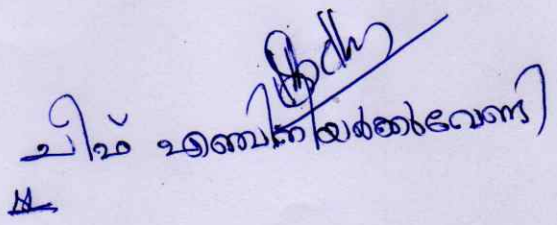 ചീഫ് എഞ്ചിനീയർക്കുവേണ്ടി